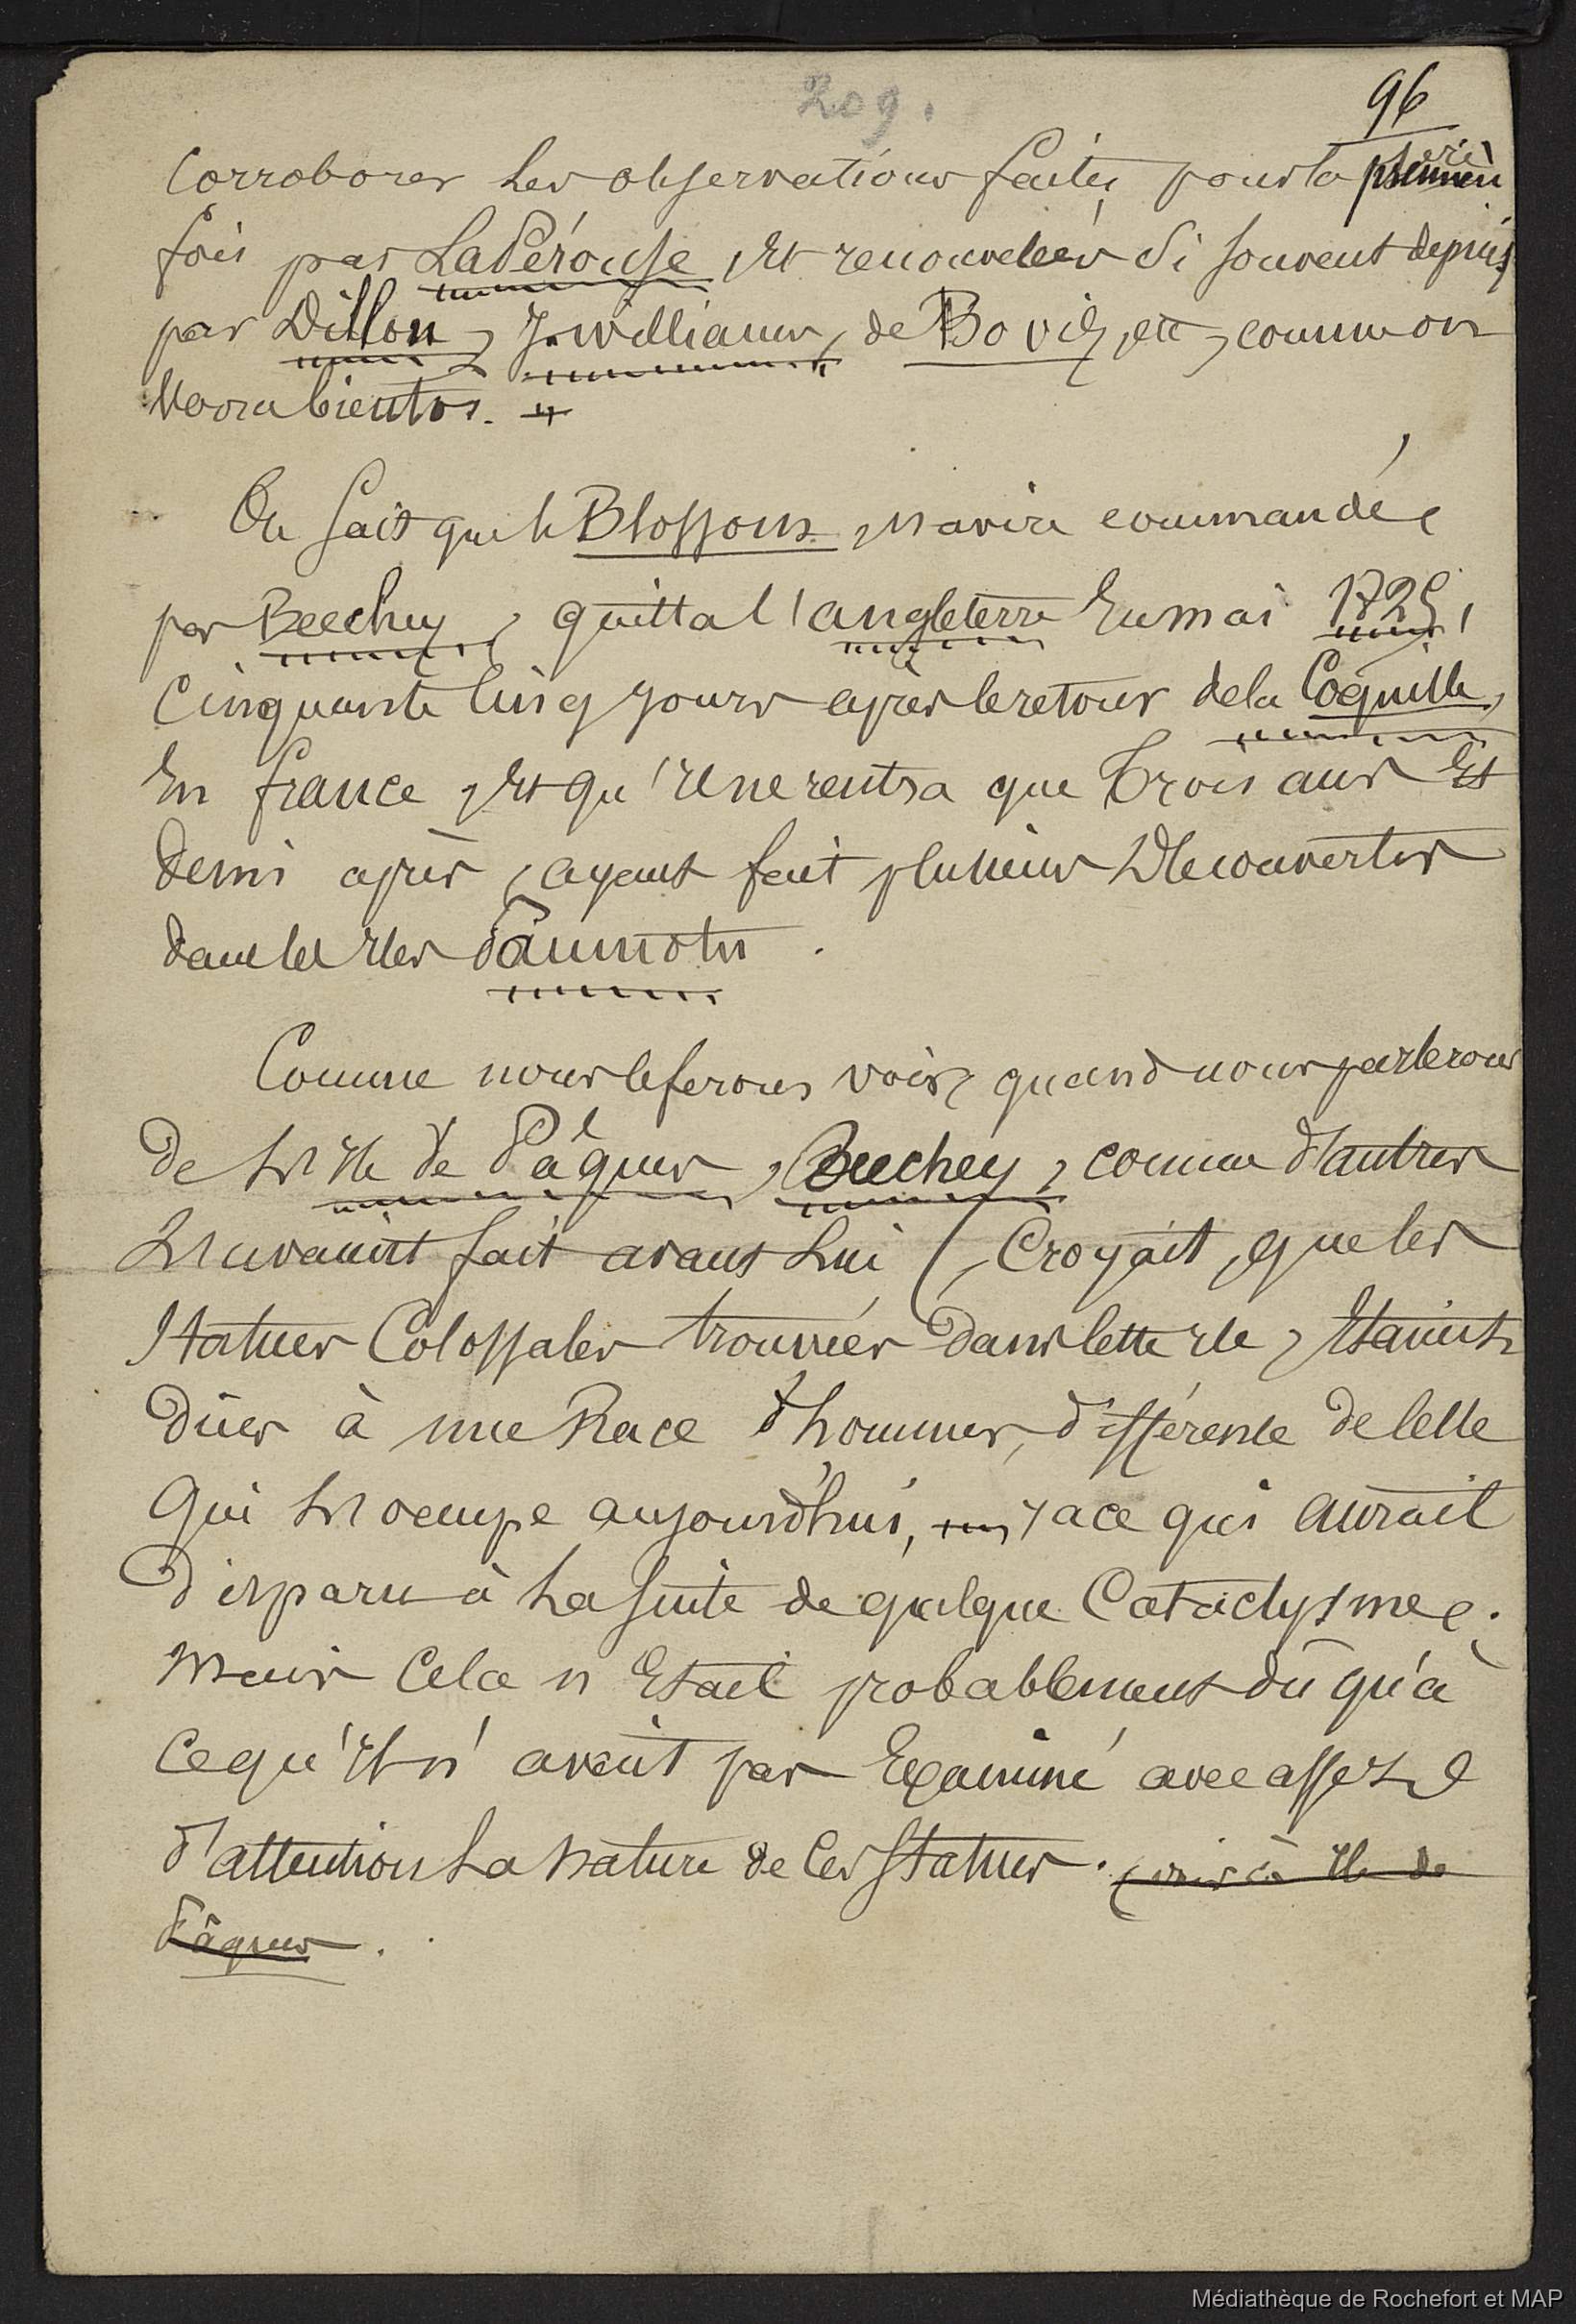 209.
96
Corroborer les observations faites pour la première
fois par LaPérouse, et renouvelées si souvent depuis
par Dillon, J. Williams, de Bovis, etc, comme on
verra bientôt.
On sait que le Blossom, navire commandé
par Beechey, quitta l'angleterre en mai 1825,
Cinquante cinq jours après le retour de la Coquille,
En france, et qu'il ne rentra que trois ans Et
demi après, ayant fait plusieurs Découvertes
dans les iles Paumotu.
Comme nous le ferons voir, quand nous parlerons
De L'Ile de Pâques, Beechey, comme d'autres
L'avaient fait avant Lui, Croyait, que les
Statues Colossales trouvées Dans cette ile, Etaient
Dûes à une Race d'hommes, différente de celle
Qui L'occupe aujourd'hui, race qui aurait
Disparu à La suite de quelque Cataclysme.
Mais Cela n'Etait probablement dû qu'à
ce qu'il n'avait pas Examiné avec assez
d'attention La nature de Ces Statues. (voir à Ile de
Pâques.
Médiathèque de Rochefort et MAP